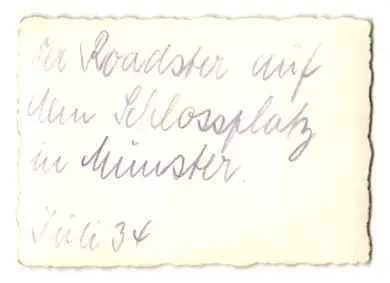 Der Roadster auf
dem Schlossplatz
in Münster.
Juli 34